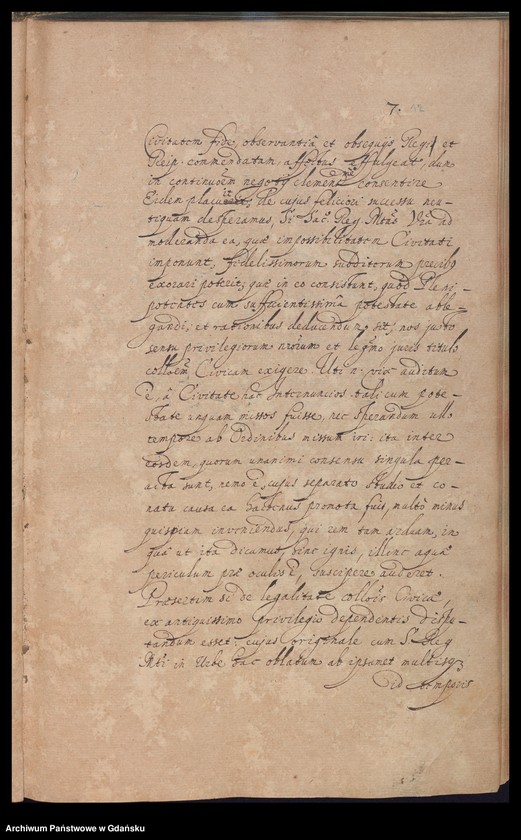 7.
Civitatem fide, observantiâ et obsequijs Regi et
Reip. commendatam, affectus effulgeat, dum
in continuoem negotij clementme consentire
Eidem placuit; de cujus feliciori successu neu-
tiquam desperamus, Si Sac. Reg. Mtas Vra ad
moderanda ea, quæ impossibilitatem Civitati
imponunt, fidelissimorum subditorum precibo
exorari poterit; quæ in eo consistunt, quod Pleni-
potentes cum sufficientissimâ potestate able-
gandi; et rationibus deducendum sit, nos justo
sensu privilegiorum nrorum et legmo juris titulo
collôem Civicam exigere. Uti n. vix auditum
ê, â Civitate hac Internuncios tali cum pote-
state unquam missos fuisse, nec sperandum ullo
tempore ab Ordinibus missum iri: ita inter
eosdem, quorum unanimi consensu singula per-
acta sunt, nemo ê, cujus separato studio et co-
natu causa ea hactenus promota fuit, multô minus
quispiam inveniendus, qui rem tam arduam, in
quâ ut ita dicamus, hinc ignis, illinc aquæ
periculum præ oculis ê, suscipere auderet.
Præsertim si de legalitate collôis Civicæ,
ex antiquissimo privilegio dependentis dispu-
tandum esset: cujus originale cum Sæ Reg
Mti in Urbe hac oblatum ab ipsamet multisq3
id temporis
Archiwum Państwowe w Gdańsku